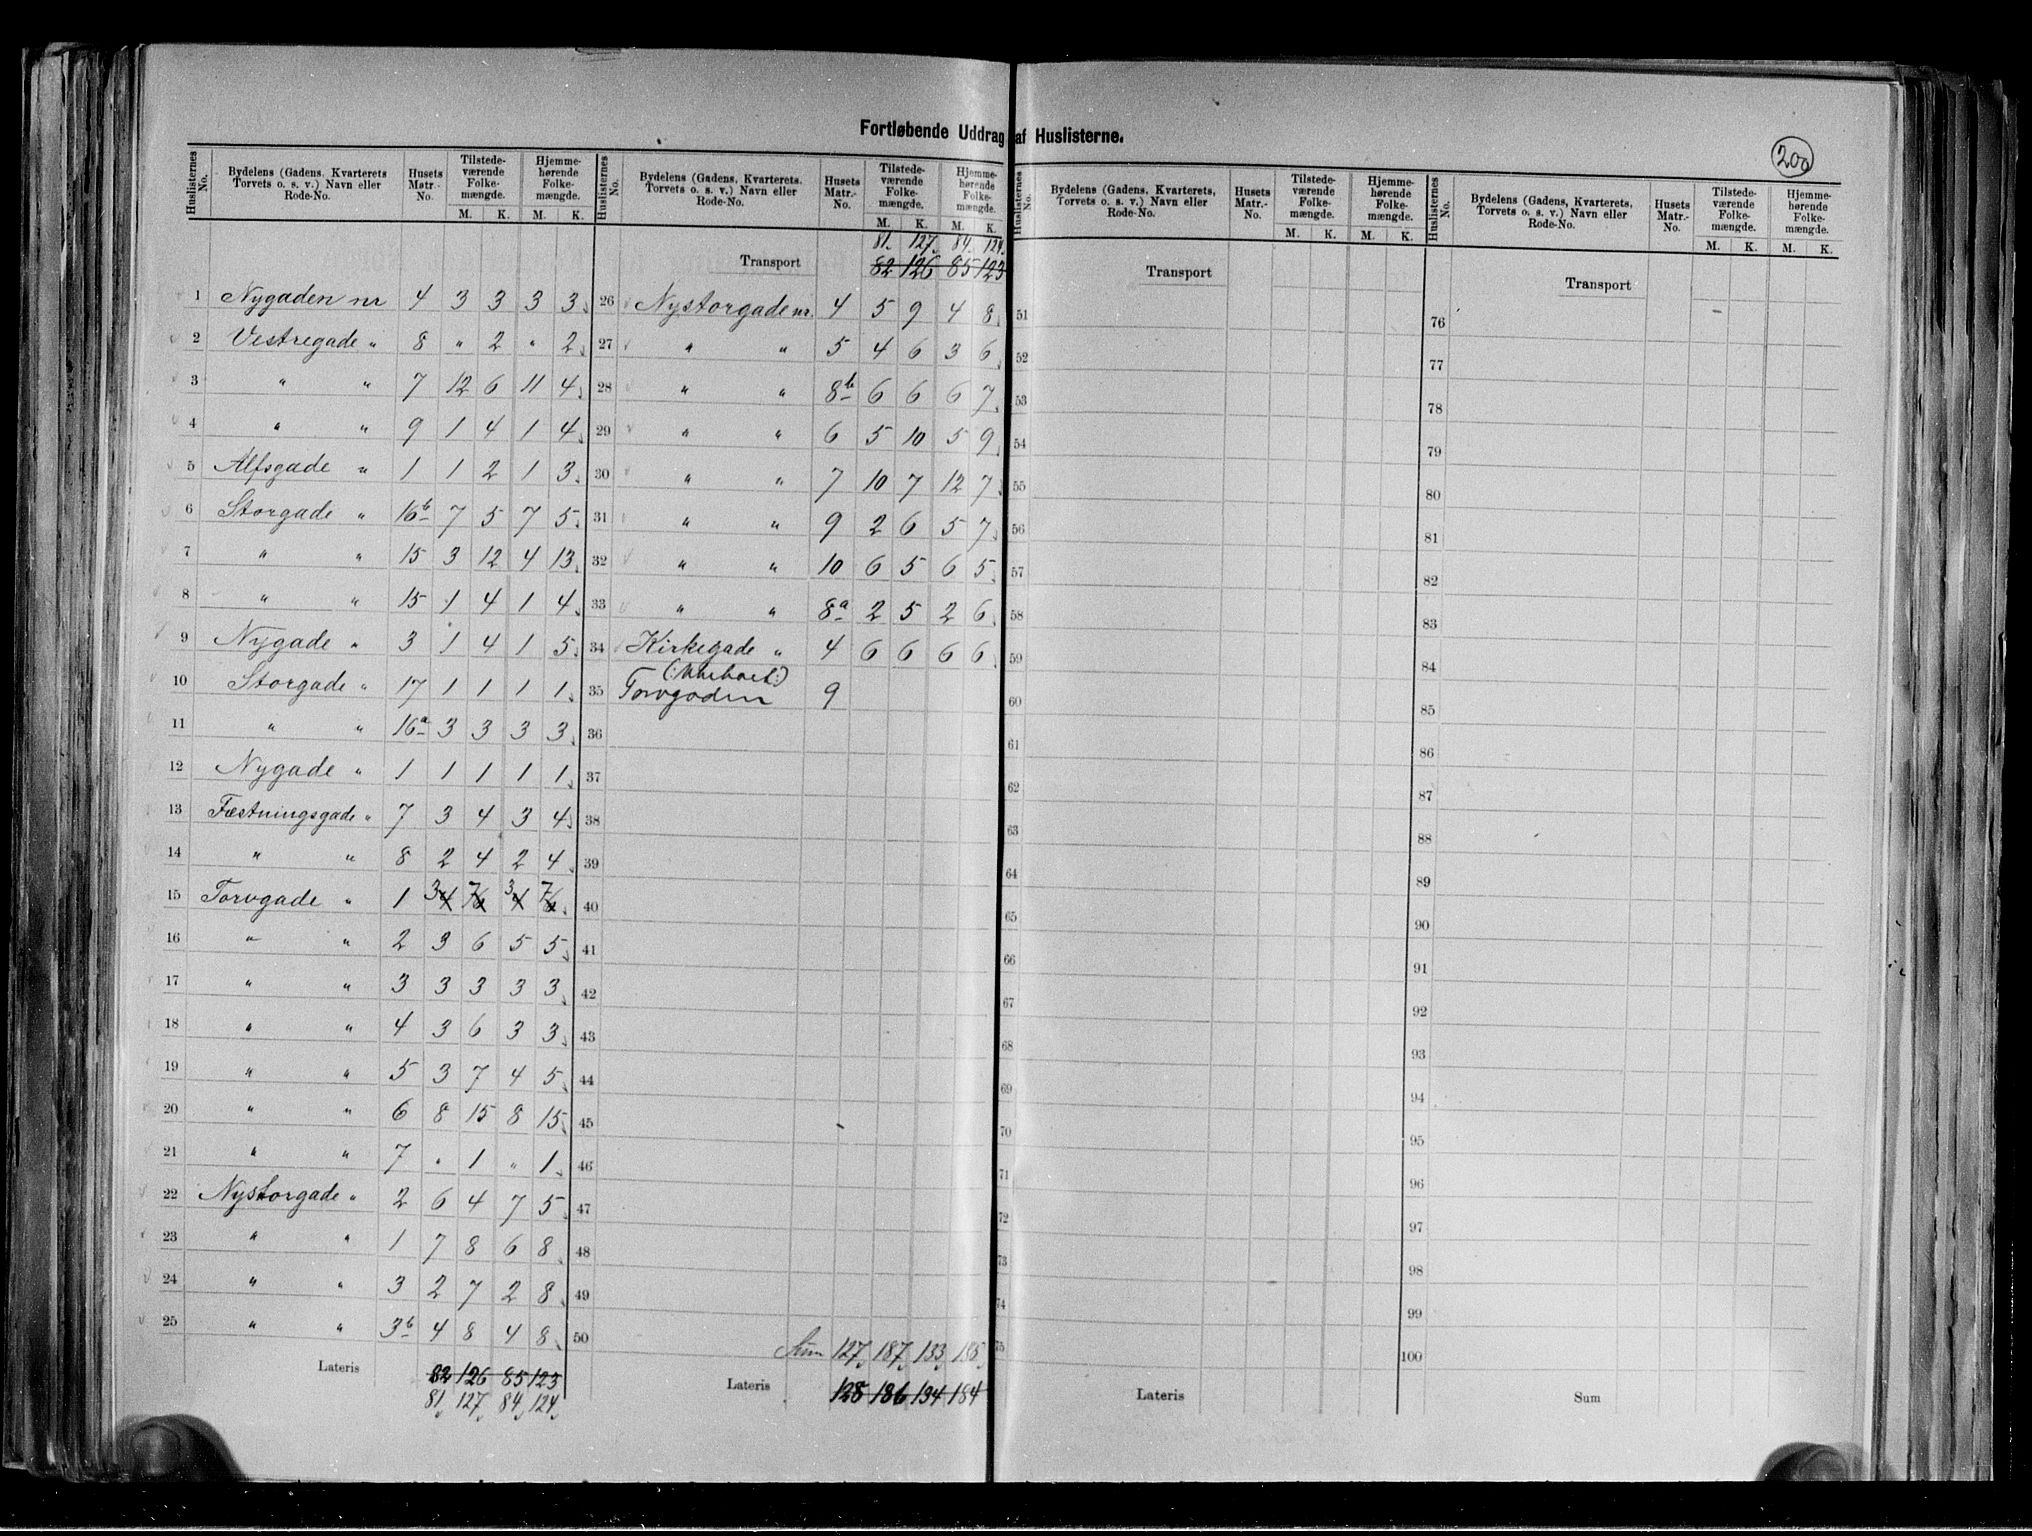 Fortløbende Uddrag af Huslisterne.
200
Huslisternes No. | Bydelens (Gadens, Kvarterets Torvets o. s. v.) Navn eller Rode-No. | Husets Matr.-No. | Tilstedeværende Folkemængde. M. K. | Hjemmehørende Folkemængde. M. K.
1 Nygaden nr 4 3 3 3 3
2 Vestregade " 8 " 2 " 2
3 " " 7 12 6 11 4
4 " " 9 1 4 1 4
5 Alfsgade " 1 1 2 1 3
6 Storgade " 16b 7 5 7 5
7 " " 15 3 12 4 13
8 " " 15 1 4 1 4
9 Nygade " 3 1 4 1 5
10 Storgade " 17 1 1 1 1
11 " " 16a 3 3 3 3
12 Nygade " 1 1 1 1 1
13 Fæstningsgade " 7 3 4 3 4
14 " " 8 2 4 2 4
15 Torvgade " 1 3 4 7 6 3 4 7 6
16 " " 2 3 6 5 5
17 " " 3 3 3 3 3
18 " " 4 3 6 3 3
19 " " 5 3 7 4 5
20 " " 6 8 15 8 15
21 " " 7 " 1 " 1
22 Nystorgade " 2 6 4 7 5
23 " " 1 7 8 6 8
24 " " 3 2 7 2 8
25 " " 3b 4 8 4 8
Lateris 82 126 85 123
81 127 84 124
Huslisternes No. | Bydelens (Gadens, Kvarterets, Torvets o. s. v.) Navn eller Rode-No. | Husets Matr.-No. | Tilstedeværende Folkemængde. M. K. | Hjemmehørende Folkemængde. M. K.
81 127 84 124
Transport 82 126 85 123
26 Nystorgade nr. 4 5 9 4 8
27 " " 5 4 6 3 6
28 " " 8b 6 6 6 7
29 " " 6 5 10 5 9
30 " " 7 10 7 12 7
31 " " 9 2 6 5 7
32 " " 10 6 5 6 5
33 " " 8a 2 5 2 6
34 Kirkegade " 4 6 6 6 6
35 Torvgaden 9
36
37
38
39
40
41
42
43
44
45
46
47
48
49
50
Sum 127 187 133 185
Lateris 128 186 134 184
Huslisternes No. | Bydelens (Gadens, Kvarterets, Torvets o. s. v.) Navn eller Rode-No. | Husets Matr.-No. | Tilstedeværende Folkemængde. M. K. | Hjemmehørende Folkemængde. M. K.
Transport
51
52
53
54
55
56
57
58
59
60
61
62
63
64
65
66
67
68
69
70
71
72
73
74
75
Lateris
Huslisternes No. | Bydelens (Gadens, Kvarterets, Torvets o. s. v.) Navn eller Rode-No. | Husets Matr.-No. | Tilstedeværende Folkemængde. M. K. | Hjemmehørende Folkemængde. M. K.
Transport
76
77
78
79
80
81
82
83
84
85
86
87
88
89
90
91
92
93
94
95
96
97
98
99
100
Sum